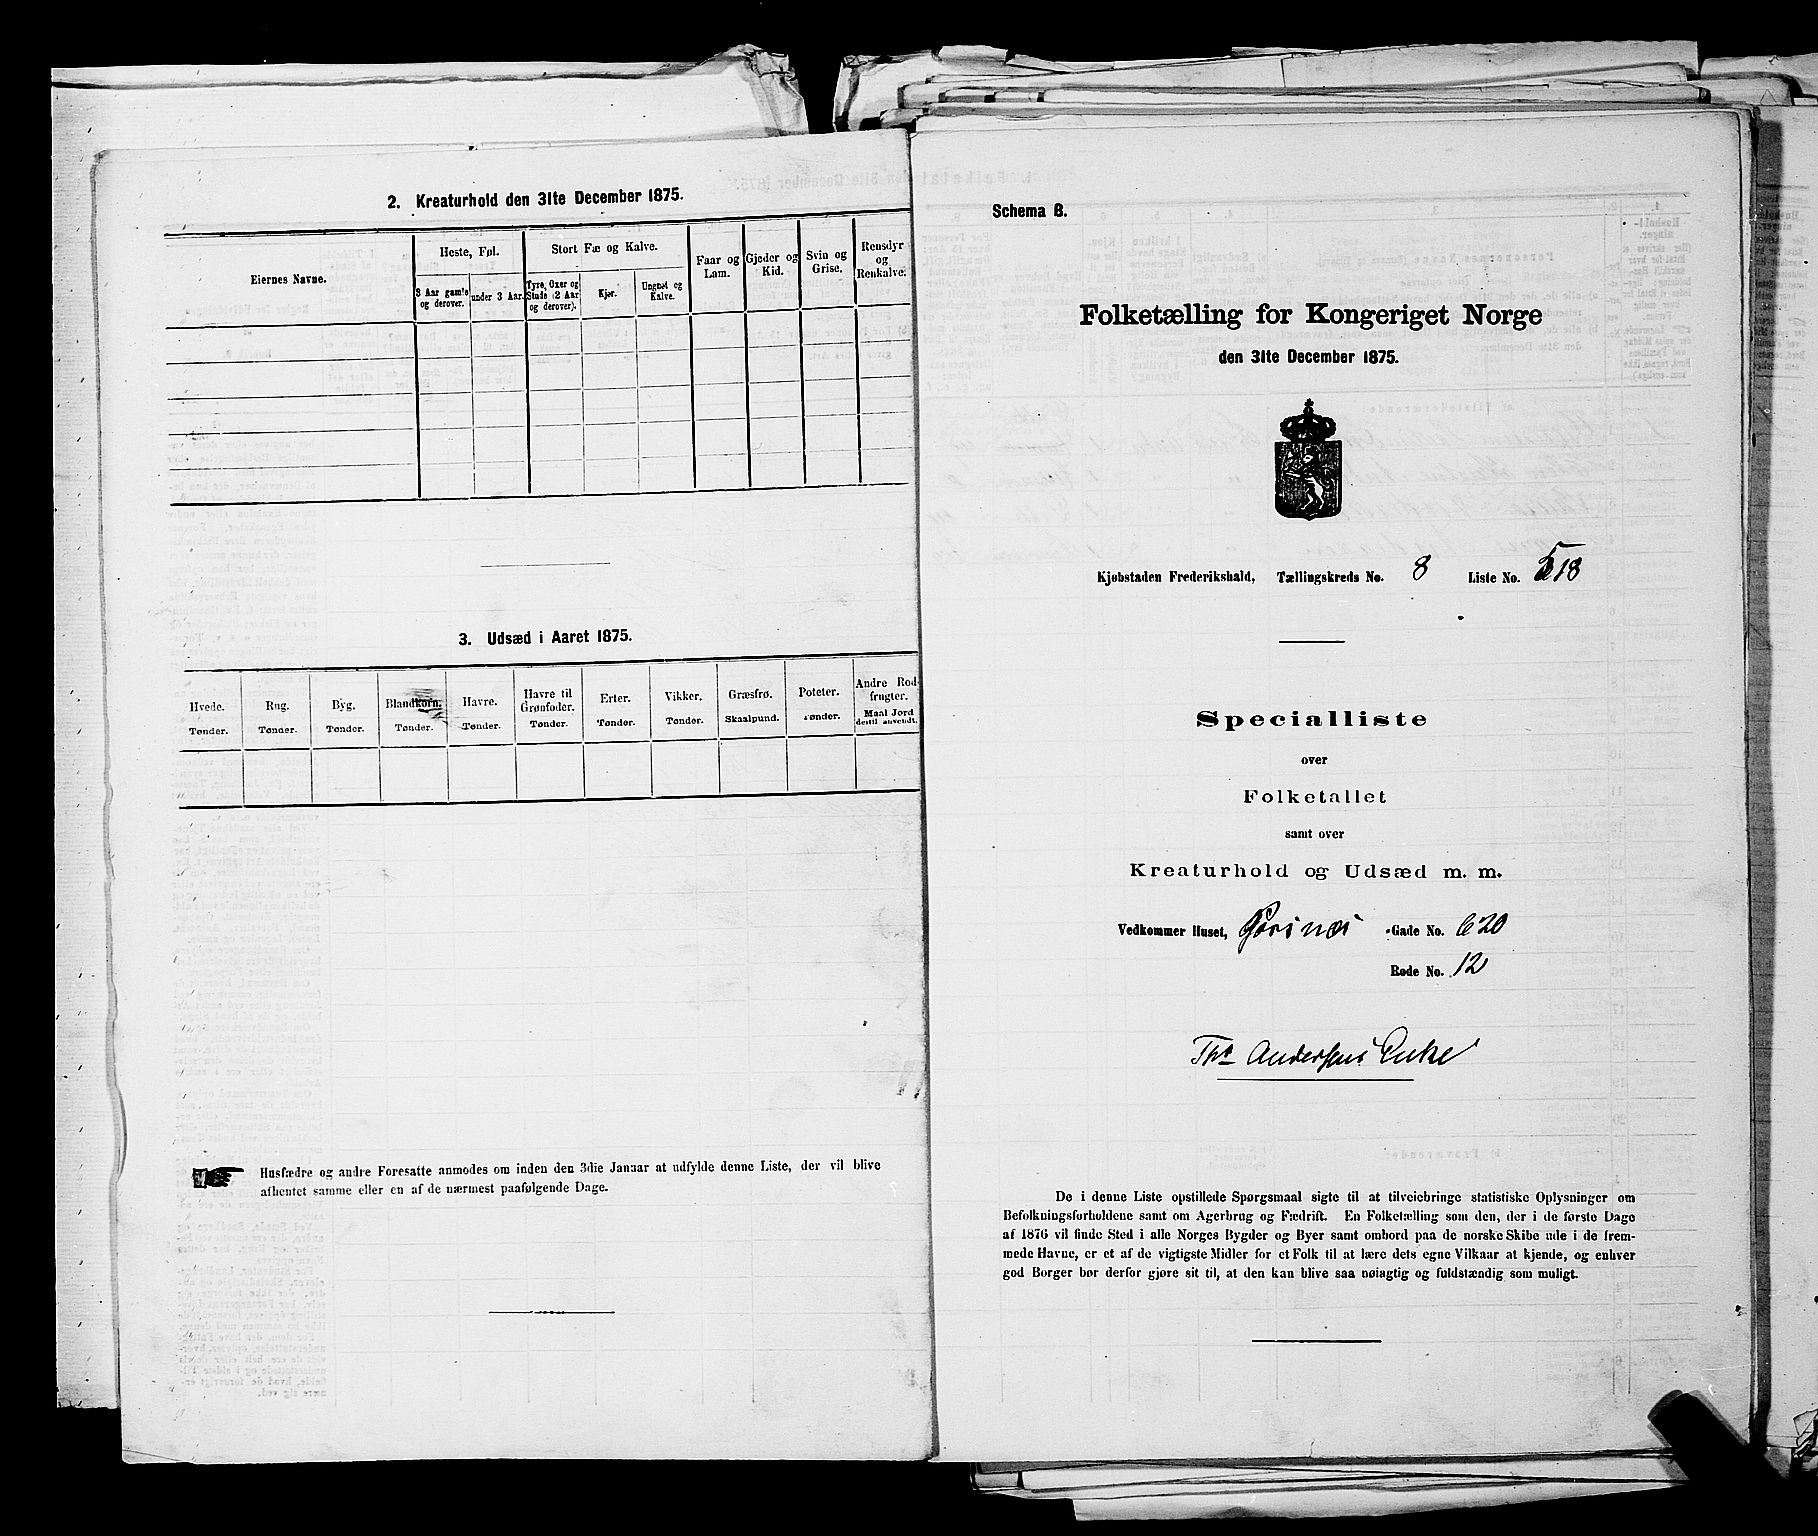 2. Kreaturhold den 31te December 1875.
Eiernes Navne.
Heste, Føl.
3 Aar gamle og derover.
under 3 Aar.
Stort Fæ og Kalve.
Tyre, Oxer og Stude (2 Aar og derover).
Kjør.
Ungnøt og Kalve.
Faar og Lam.
Gjeder og Kid.
Svin og Grise.
Rensdyr og Renkalve.
3. Udsæd i Aaret 1875.
Hvede. Tønder.
Rug. Tønder.
Byg. Tønder.
Blandkorn. Tønder.
Havre. Tønder.
Havre til Grønfoder. Tønder.
Erter. Tønder.
Vikker. Tønder.
Græsfrø. Skaalpund.
Poteter. Tønder.
Andre Rodfrugter. Maal Jord dertil anvendt.
Husfædre og andre Foresatte anmodes om inden den 3die Januar at udfylde denne Liste, der vil blive
afhentet samme eller en af de nærmest paafølgende Dage.
Schema B.
Folketælling for Kongeriget Norge
den 31te December 1875.
Kjøbstaden Frederikshald, Tællingskreds No. 8 Liste No. 518
Specialliste
over
Folketallet
samt over
Kreaturhold og Udsæd m. m.
Vedkommer Huset, Gade No. 620
Rode No. 12
Andersens Enke
De i denne Liste opstillede Spørgsmaal sigte til at tilveiebringe statistiske Oplysninger om
Befolkningsforholdene samt om Agerbrug og Fædrift. En Folketælling som den, der i de første Dage
af 1876 vil finde Sted i alle Norges Bygder og Byer samt ombord paa de norske Skibe ude i de frem-
mede Havne, er et af de vigtigste Midler for et Folk til at lære dets egne Vilkaar at kjende, og enhver
god Borger bør derfor gjøre sit til, at den kan blive saa nøiagtig og fuldstændig som muligt.